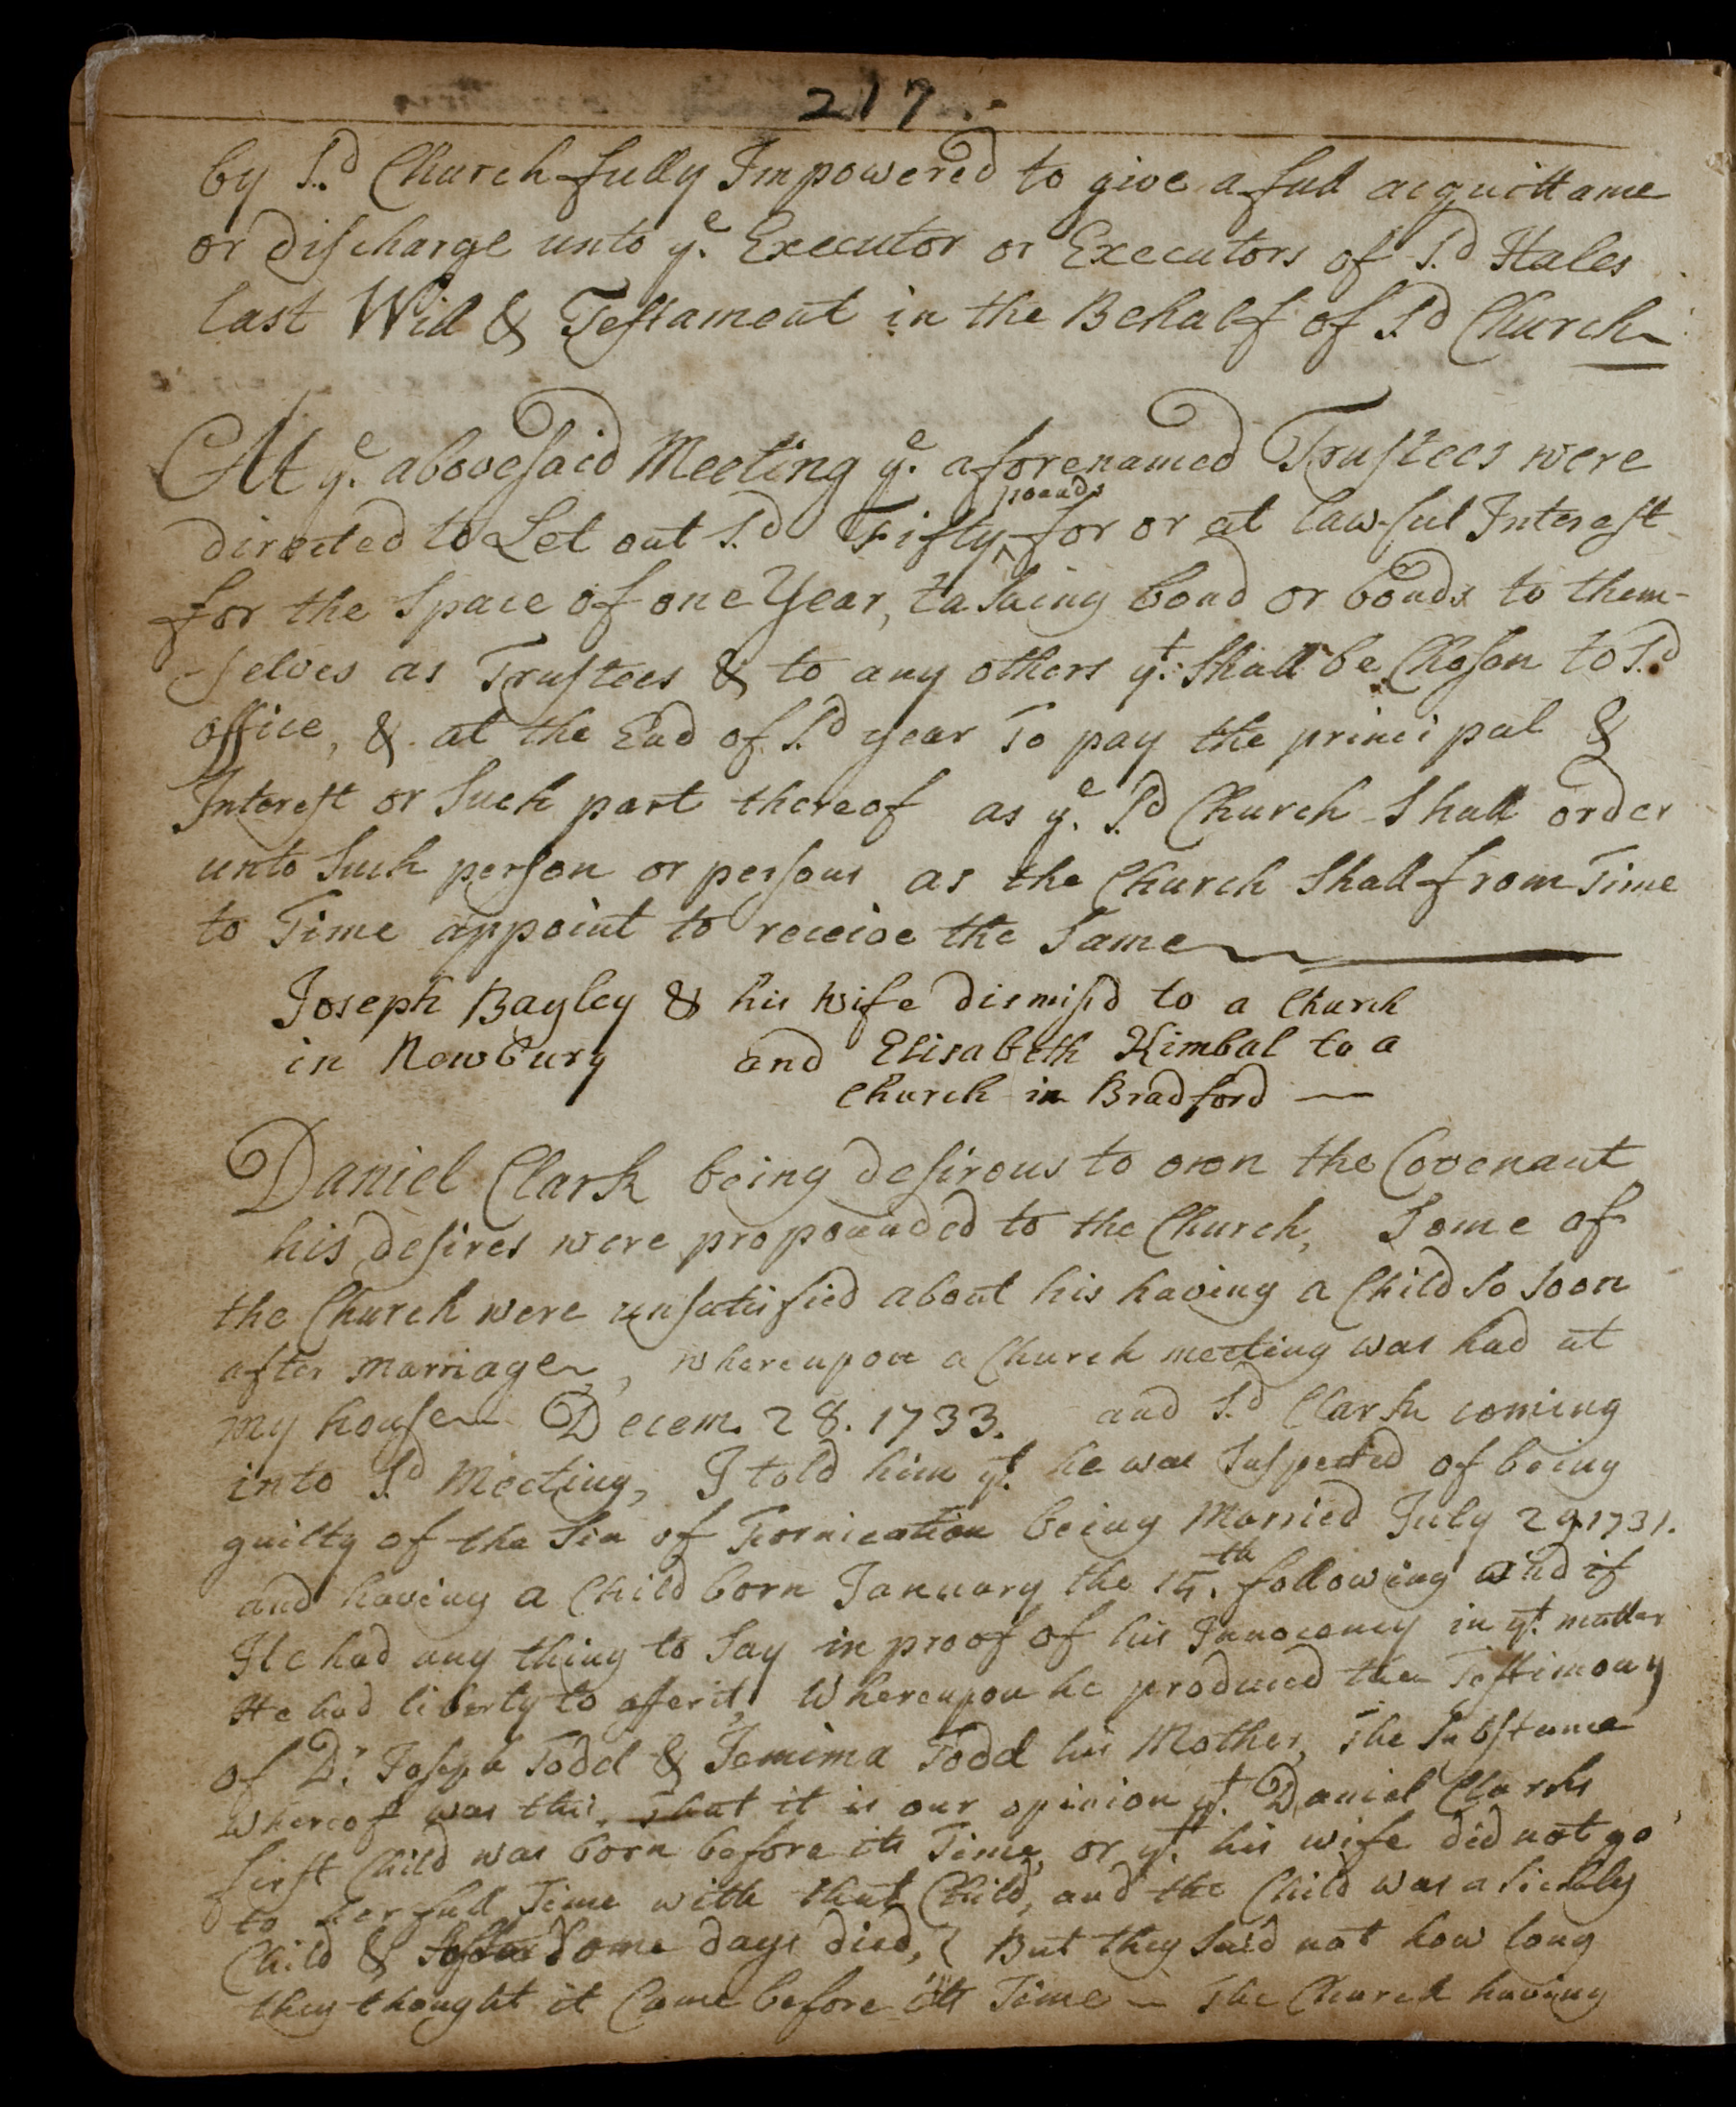 217.
by S.d Church fully Impowered to give a full acquittance
or discharge unto ye. Executor or Executors of S.d Hales
last Will & Testament in the Behalf of S.d Church
At ye. abovesaid Meeting ye. aforenamed Trustees were
directed to Let out S.d Fifty ^pounds for or at lawful Interest
for the Space of one Year, taking bond or bonds to them-
-selves as Trustees & to any others yt. Shall be Chosen to S.d
office, & at the End of S.d year To pay the principal &
Interest or Such part thereof as ye. S.d Church Shall order
unto Such person or persons as the Church Shall from Time
to Time appoint to receive the Same
Joseph Bayley & his wife dismisd to a Church
in Newbury and Elisabeth Kimbal to a
Church in Bradford —
Daniel Clark being desirous to own the Covenant
his desires were propounded to the Church, Some of
the Church were unsatisfied about his having a Child So Soon
after marriage, whereupon a Church meeting was had at
my house Decem. 28. 1733. and S.d Clark coming
into S.d Meeting, I told him yt. he was Suspected of being
guilty of the Sin of Fornication being Married July 29. 1731.
and having a Child born January the 15.th following and if
He had any thing to Say in proof of his Innocency in yt. matter
He had liberty to offer it, Whereupon he produced the Testimony
of Dr. Joseph Todd & Jemima Todd his Mother, The Substance
Whereof was this, That it is our opinion yt. Daniel Clarks
first Child was born before its Time, or yt. his wife did not go
to her full Time with that Child, and the Child was a Sickly
Child & after Some days died, But they Said not how long
they thought it Came before its Time — The Church having